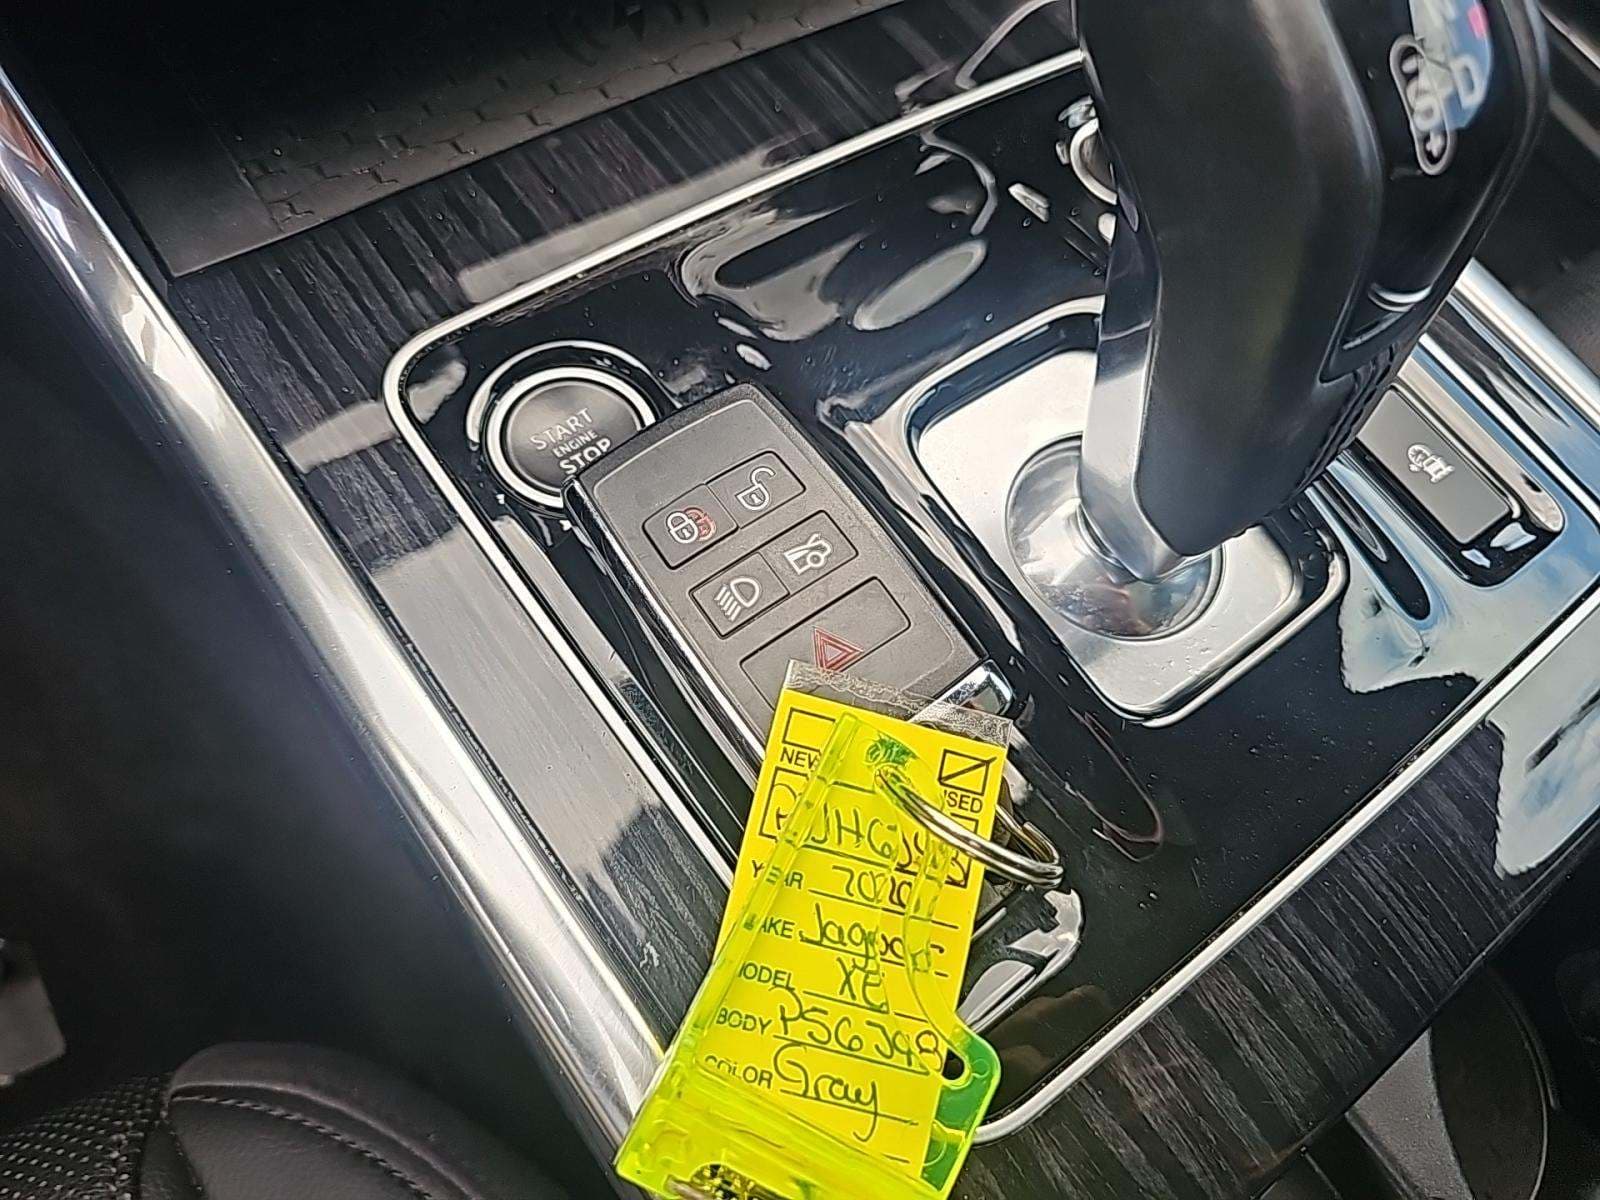 START
ENGINE
STOP
NEW
USED
YEAR 2020
MAKE Jaguar
MODEL XE
BODY P56J98
COLOR Gray